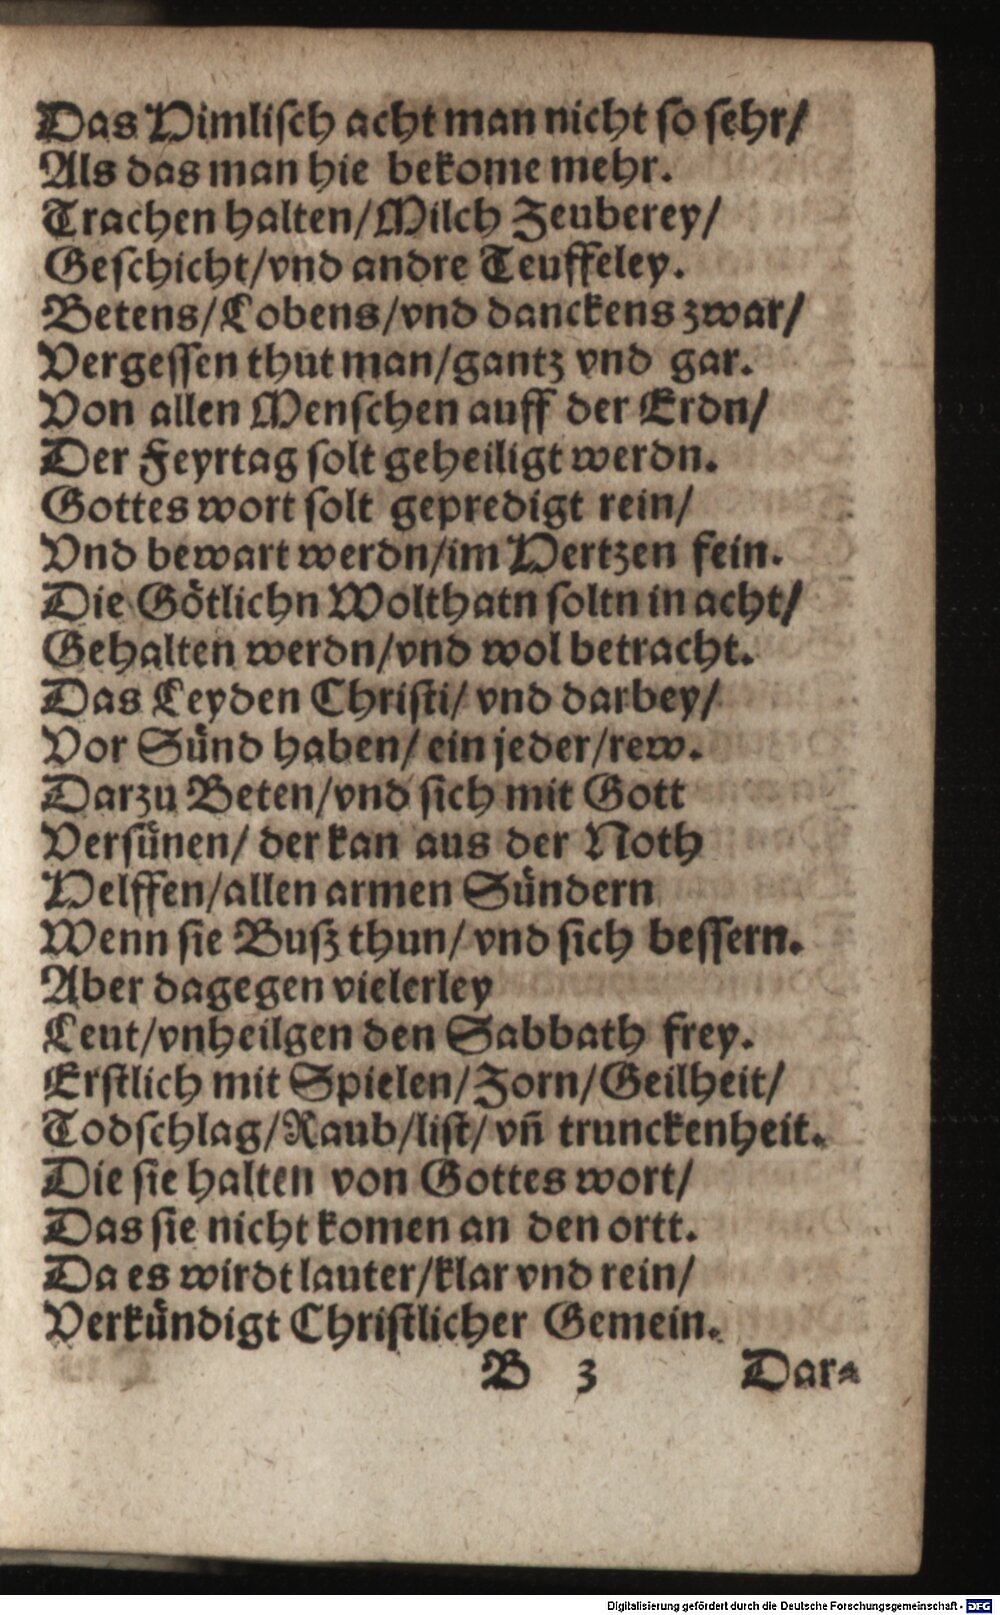 Das Himlisch acht man nicht so sehr/
Als das man hie bekome mehr.
Trachen halten/Milch Zeuberey/
Geschicht/vnd andre Teuffeley.
Betens/Lobens/vnd danckens zwar/
Vergessen thut man/gantz vnd gar.
Von allen Menschen auff der Erdn/
Der Feyrtag solt geheiligt werdn.
Gottes wort solt gepredigt rein/
Vnd bewart werdn/im Hertzen fein.
Die Götlichn Wolthatn soltn in acht/
Gehalten werdn/vnd wol betracht.
Das Leyden Christi/ vnd darbey/
Vor Sünd haben/ ein jeder/rew.
Darzu Beten/vnd sich mit Gott
Versünen/ der kan aus der Noth
Helffen/allen armen Sündern
Wenn sie Buß thun/ vnd sich bessern.
Aber dagegen vielerley
Leut/vnheilgen den Sabbath frey.
Erstlich mit Spielen/Zorn/Geilheit/
Todschlag/Raub/list/ vñ trunckenheit.
Die sie halten von Gottes wort/
Das sie nicht komen an den ortt.
Da es wirdt lauter/klar vnd rein/
Verkündigt Christlicher Gemein.
B 3 Dar-
Digitalisierung gefördert durch die Deutsche Forschungsgemeinschaft - DFG